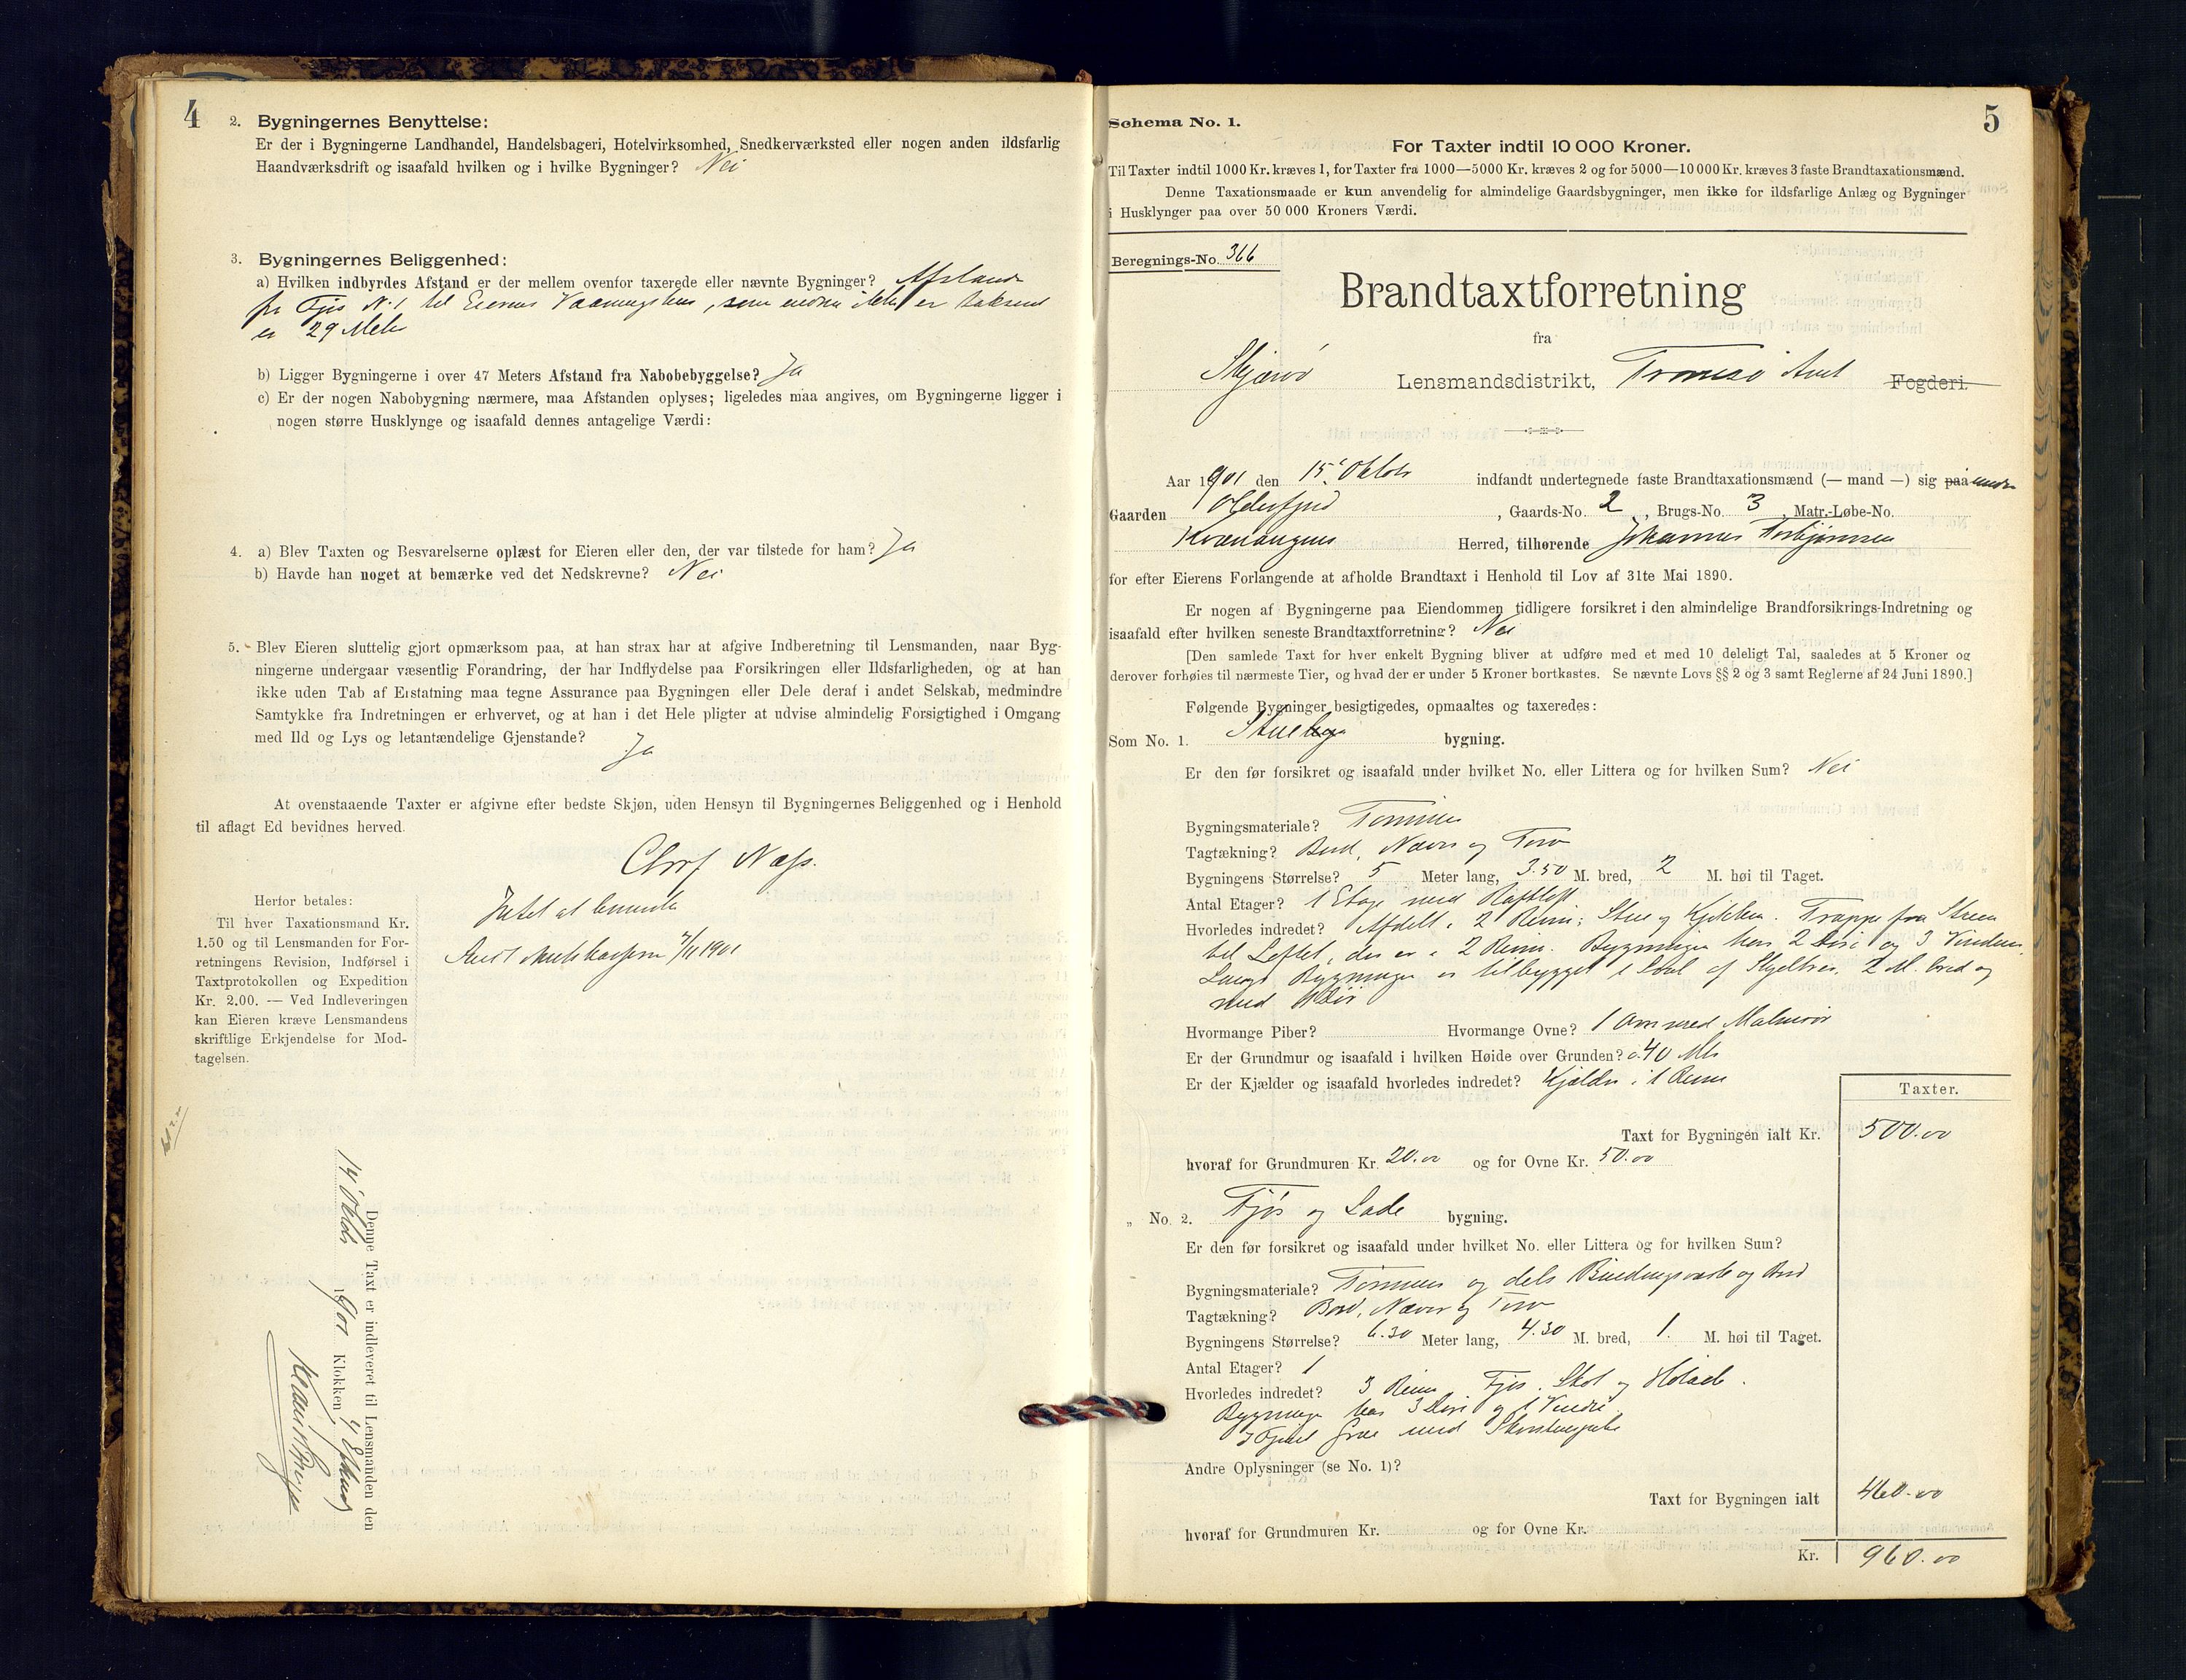 4
2. Bygningernes Benyttelse:
Er der i Bygningerne Landhandel, Handelsbageri, Hotelvirksomhed, Snedkerværksted eller nogen anden ildsfarlig
Haandværksdrift og isaafald hvilken og i hvilke Bygninger? Nei
3. Bygningernes Beliggenhed:
a) Hvilken indbyrdes Afstand er der mellem ovenfor taxerede eller nævnte Bygninger? Afstand
fra Fjøs N. 1 til Eierens Vaaningshus, som endnu ikke er takseret
er 29 Meter
b) Ligger Bygningerne i over 47 Meters Afstand fra Nabobebyggelse? Ja
c) Er der nogen Nabobygning nærmere, maa Afstanden oplyses; ligeledes maa angives, om Bygningerne ligger i
nogen større Husklynge og isaafald dennes antagelige Værdi:
4. a) Blev Taxten og Besvarelserne oplæst for Eieren eller den, der var tilstede for ham? Ja
b) Havde han noget at bemærke ved det Nedskrevne? Nei
5. Blev Eieren sluttelig gjort opmærksom paa, at han strax har at afgive Indberetning til Lensmanden, naar Byg-
ningerne undergaar væsentlig Forandring, der har Indflydelse paa Forsikringen eller Ildsfarligheden, og at han
ikke uden Tab af Erstatning maa tegne Assurance paa Bygningen eller Dele deraf i andet Selskab, medmindre
Samtykke fra Indretningen er erhvervet, og at han i det Hele pligter at udvise almindelig Forsigtighed i Omgang
med Ild og Lys og letantændelige Gjenstande?
Ja
At ovenstaaende Taxter er afgivne efter bedste Skjøn, uden Hensyn til Bygningernes Beliggenhed og i Henhold
til aflagt Ed bevidnes herved.
Chrf Næss.
Intet at bemærke
7/11 1901
Herfor betales:
Til hver Taxationsmand Kr.
1.50 og til Lensmanden for For-
retningens Revision, Indførsel i
Taxtprotokollen og Expedition
Kr. 2.00. — Ved Indleveringen
kan Eieren kræve Lensmandens
skriftlige Erkjendelse for Mod-
tagelsen.
Denne Taxt er indleveret til Lensmanden den
14 Oktober 1901 Klokken 4
5
Schema No. 1.
For Taxter indtil 10 000 Kroner.
Til Taxter indtil 1000 Kr. kræves 1, for Taxter fra 1000—5000 Kr. kræves 2 og for 5000—10 000 Kr. kræves 3 faste Brandtaxationsmænd.
Denne Taxationsmaade er kun anvendelig for almindelige Gaardsbygninger, men ikke for ildsfarlige Anlæg og Bygninger
i Husklynger paa over 50 000 Kroners Værdi.
Beregnings-No. 366
Brandtaxtforretning
fra
Skjærvø Lensmandsdistrikt, Tromsø Amt Fogderi.
Aar 1901 den 15. Oktobr indfandt undertegnede faste Brandtaxationsmænd (— mand —) sig paa under
Gaarden Olderfjord, Gaards-No. 2, Brugs-No. 3, Matr.-Løbe-No.
Kvænangens Herred, tilhørende Johannes Torbjørnsen
for efter Eierens Forlangende at afholde Brandtaxt i Henhold til Lov af 31te Mai 1890.
Er nogen af Bygningerne paa Eiendommen tidligere forsikret i den almindelige Brandforsikrings-Indretning og
isaafald efter hvilken seneste Brandtaxtforretning? Nei
[Den samlede Taxt for hver enkelt Bygning bliver at udføre med et med 10 deleligt Tal, saaledes at 5 Kroner og
derover forhøies til nærmeste Tier, og hvad der er under 5 Kroner bortkastes. Se nævnte Lovs §§ 2 og 3 samt Reglerne af 24 Juni 1890.]
Følgende Bygninger besigtigedes, opmaaltes og taxeredes:
Som No. 1. Stueby bygning.
Er den før forsikret og isaafald under hvilket No. eller Littera og for hvilken Sum? Nei
Bygningsmateriale? Tømmer
Tagtækning? Bord, Næver og Torv
Bygningens Størrelse? 5 Meter lang, 3.50 M. bred, 2 M. høi til Taget.
Antal Etager? 1 Etage med Røstloft
Hvorledes indredet? Afdelt i 2 Rum; Stue og Kjøkken. Trappe fra Stuen
til Loftet, der er i 2 Rum. Bygningen har 2 Døre og 3 Vinduer.
Langs Bygningen er tilbygget 1 Sval af Skjeltver. 2 M. bred og
med 1 Dør
Hvormange Piber? Hvormange Ovne? 1 Ovn med Malmrør
Er der Grundmur og isaafald i hvilken Høide over Grunden? 0.40 Mtr
Er der Kjælder og isaafald hvorledes indredet? Kjælder i 1 Rum
Taxter.
Taxt for Bygningen ialt Kr. 500.00
hvoraf for Grundmuren Kr. 20.00 og for Ovne Kr. 50.00
„ No. 2. Fjøs og Lade bygning.
Er den før forsikret og isaafald under hvilket No. eller Littera og for hvilken Sum?
Bygningsmateriale? Tømmer og dels Bindingsverk og Bord
Tagtækning? Bord, Næver og Torv
Bygningens Størrelse? 6.30 Meter lang, 4.30 M. bred, 1. M. høi til Taget.
Antal Etager? 1
Hvorledes indredet? 3 Rum Fjøs, Skot og Hølade.
Bygningen har 3 Døre og 1 Vindue.
I Fjøset Grue med Skorstenspibe
Andre Oplysninger (se No. 1)?
Taxt for Bygningen ialt 460.00
hvoraf for Grundmuren Kr. og for Ovne Kr.
Kr. 960.00